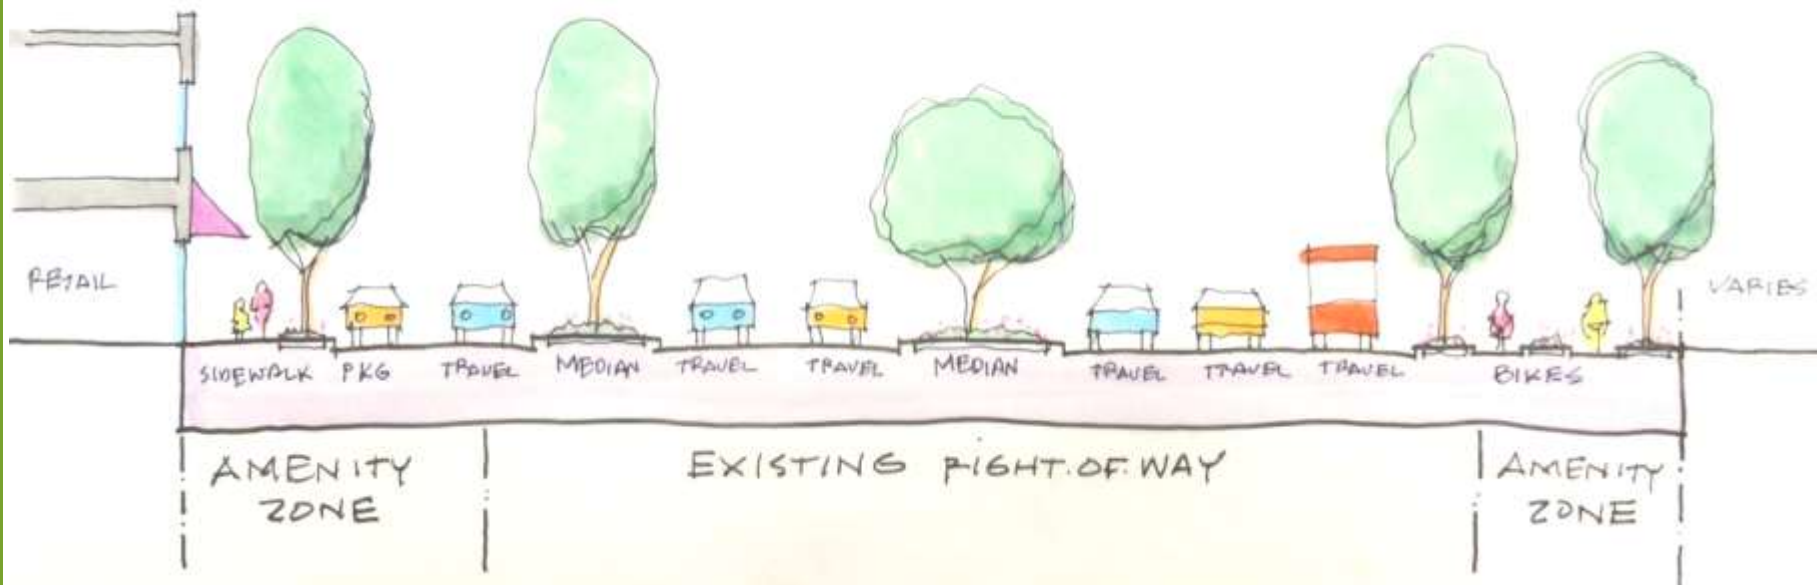 RETAIL
VARIES
SIDEWALK PKG TRAVEL MEDIAN TRAVEL TRAVEL MEDIAN TRAVEL TRAVEL TRAVEL BIKES
AMENITY
ZONE
EXISTING RIGHT.OF.WAY
AMENITY
ZONE